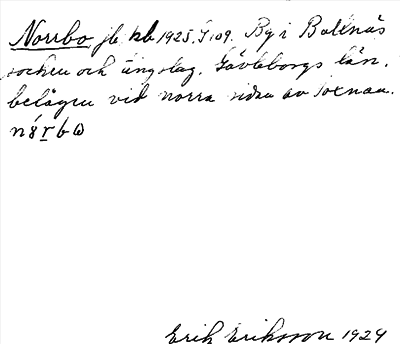 Norrbo jb kb 1925. S 109. By i Bollnäs
socken och tingslag. Gävleborgs län.
belägen vid norra sidan av Voxnan.
Erik Eriksson 1929